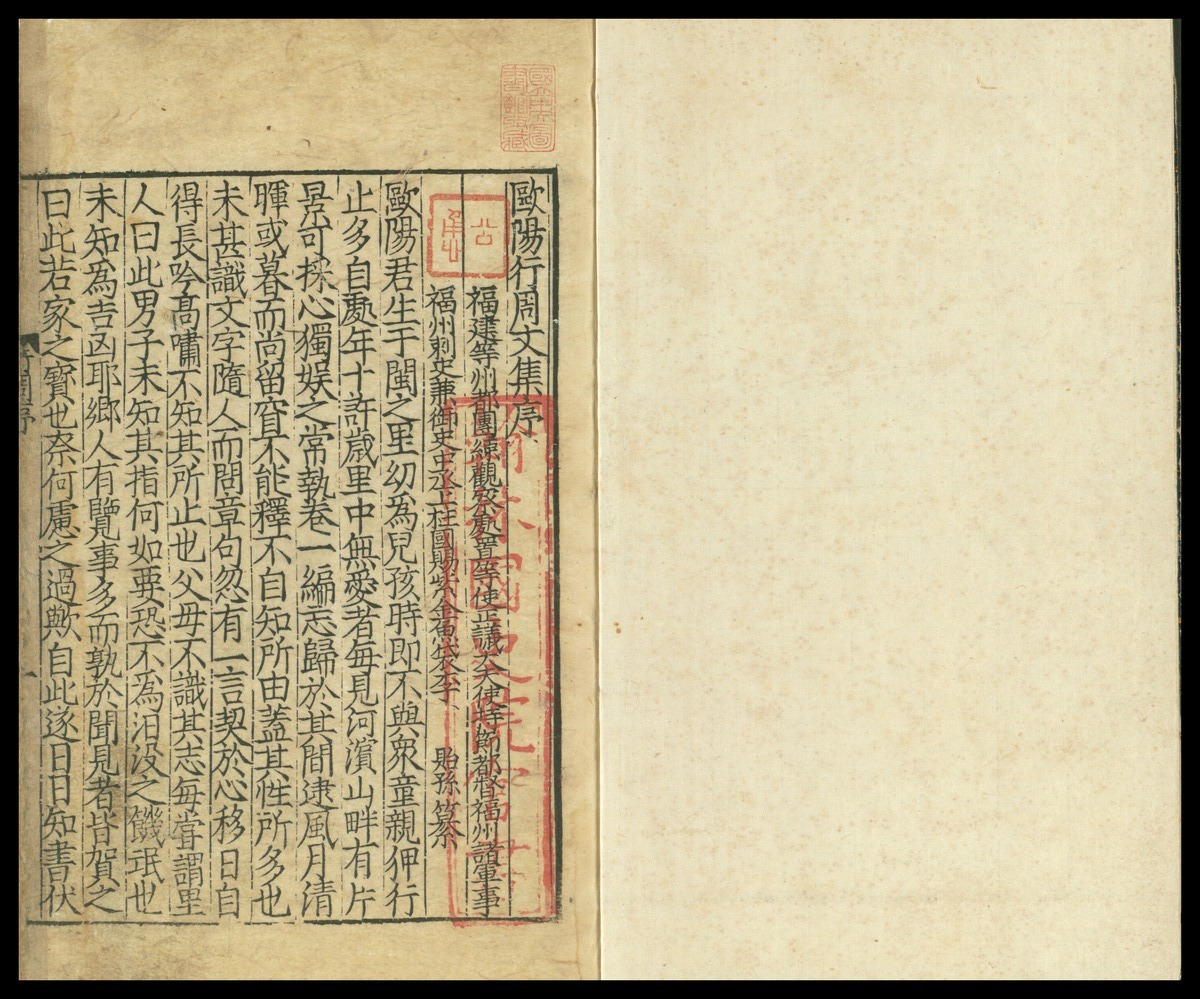 歐陽行周文集序
福建等州都團練觀察處置等使正議大夫使持節都督福州諸軍事
福州刺史兼御史中丞上柱國賜紫金魚袋李 貽孫 纂
歐陽君生于閩之里幼爲兒孩時即不與衆童親狎行
止多自處年十許歲里中無愛者每見河濱山畔有片
景可採心獨娛之常執卷一編忘歸於其間逮風月清
暉或暮而尚留窅不能釋不自知所由蓋其性所多也
未甚識文字隨人而問章句忽有一言契於心移日自
得長吟高嘯不知其所止也父母不識其志每嘗謂里
人曰此男子未知其指何如要恐不爲汨没之饑氓也
未知爲吉凶耶鄉人有覽事多而孰於聞見者皆賀之
曰此若家之寶也奈何慮之過歟自此遂日日知書伏
國立中央圖書館收藏
翰林國史院官書